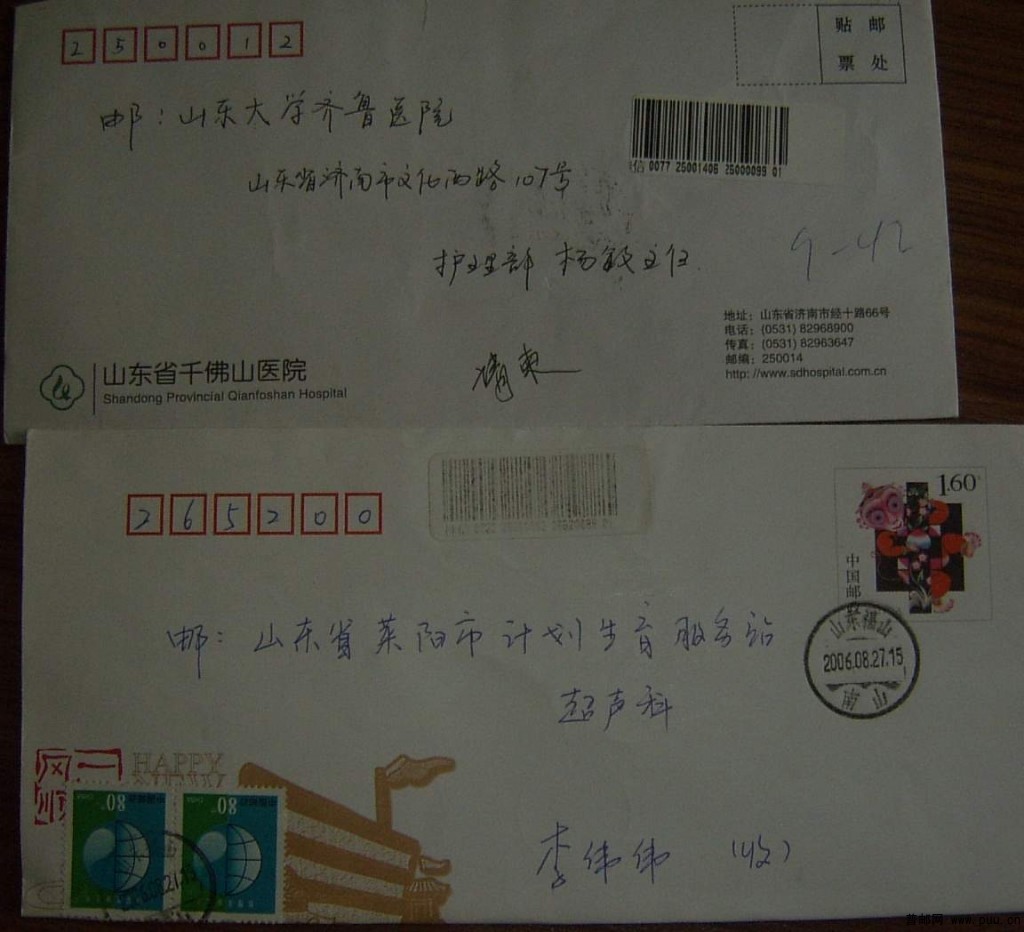 250012
贴 邮
票 处
邮：山东大学齐鲁医院
信 0077 25001406 25000099 01
山东省济南市文化西路107号
护理部 杨敏主任
9-42
地址：山东省济南市经十路66号
电话：(0531) 82968900
传真：(0531) 82963647
邮编：250014
http: //www.sdhospital.com.cn
山东省千佛山医院
Shandong Provincial Qianfoshan Hospital
265200
1.60
中国邮
山东福山
2006.08.27.15
南山
邮：山东省莱阳市计划生育服务站
超声科
HAPPY
80
80
李伟伟（收）
普邮网 www.puu.cn